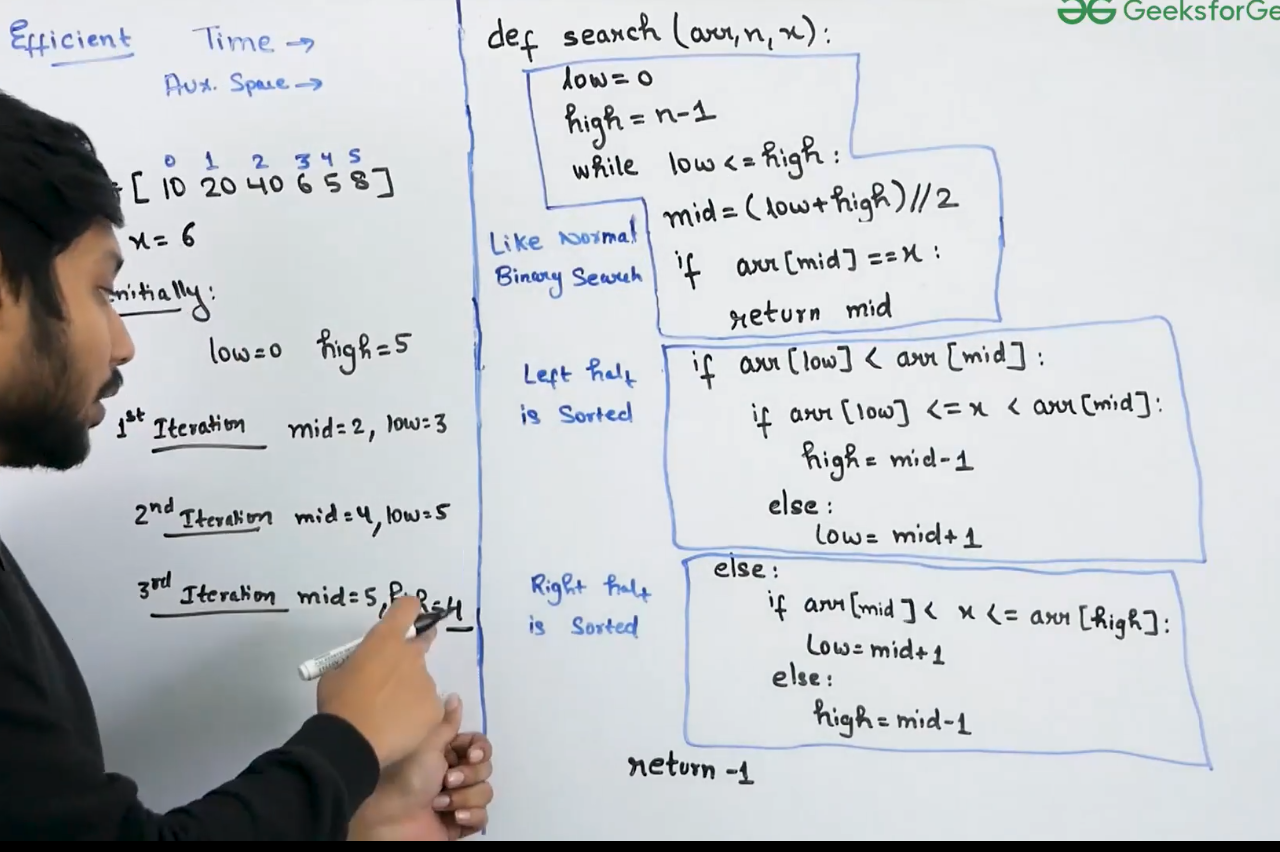 GeeksforGe
Efficient Time →
Aux. Space →
0 1 2 3 4 5
[ 10 20 40 6 5 8 ]
x = 6
nitially:
low=0 high=5
1st Iteration mid=2, low=3
2nd Iteration mid=4, low=5
3rd Iteration mid=5, =4
def search (arr, n, x):
low = 0
high = n-1
while low <= high:
mid = (low+high)//2
if arr[mid] == x:
return mid
Like Normal
Binary Search
if arr[low] < arr[mid]:
if arr[low] <= x < arr[mid]:
high = mid-1
else:
low = mid+1
Left half
is Sorted
else:
if arr[mid] < x <= arr[high]:
Low = mid+1
else:
high = mid-1
Right half
is Sorted
return -1